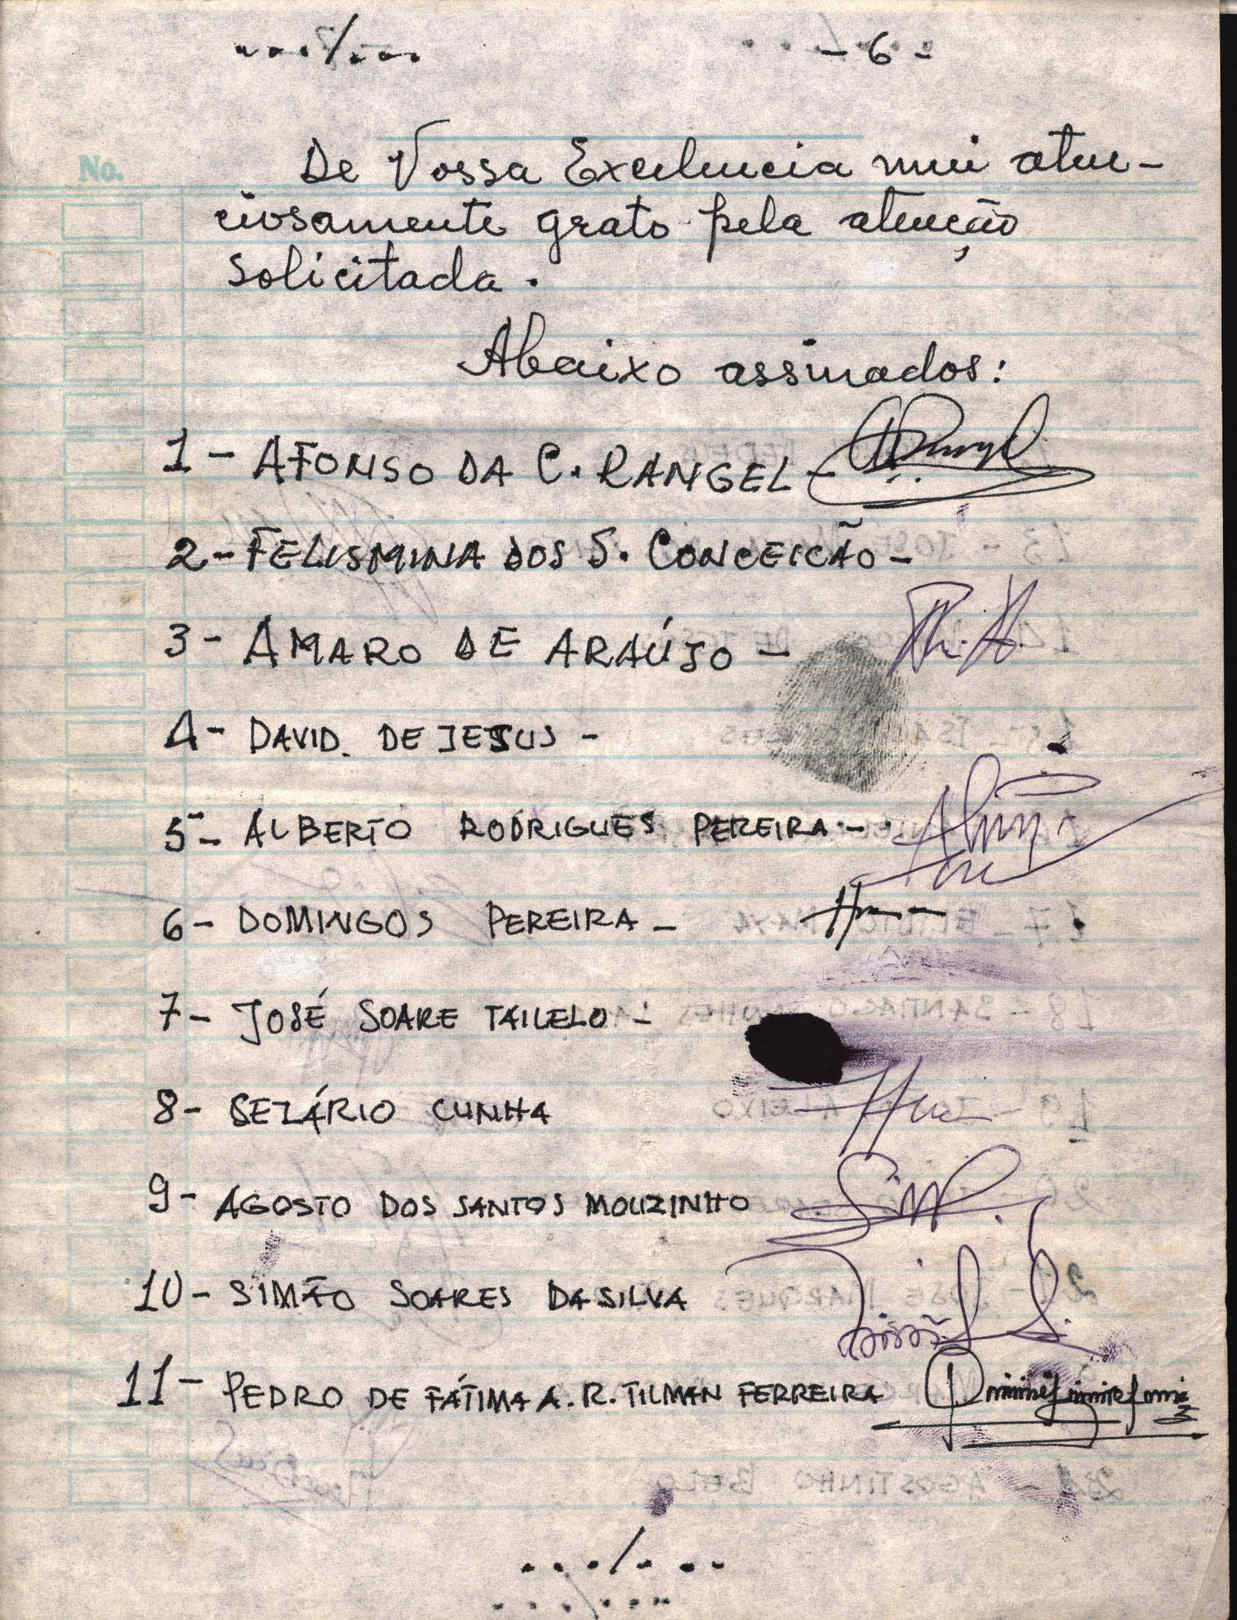 .../...
- 6 -
No.
De Vossa Excelencia mui aten-
ciosamente grato pela atenção
solicitada.
Abaixo assinados:
1- AFONSO DA C. RANGEL -
2- FELISMINA DOS S. CONCEICÃO -
3- AMARO DE ARAÚJO -
4- DAVID. DE JESUS -
5- ALBERTO RODRIGUES PEREIRA -
6- DOMINGOS PEREIRA -
7- JOSÉ SOARE TAILELO -
8- SEZÁRIO CUNHA
9- AGOSTO DOS SANTOS MOUZINHO
10- SIMÃO SOARES DA SILVA
11- PEDRO DE FÁTIMA A. R. TILMAN FERREIRA
.../...